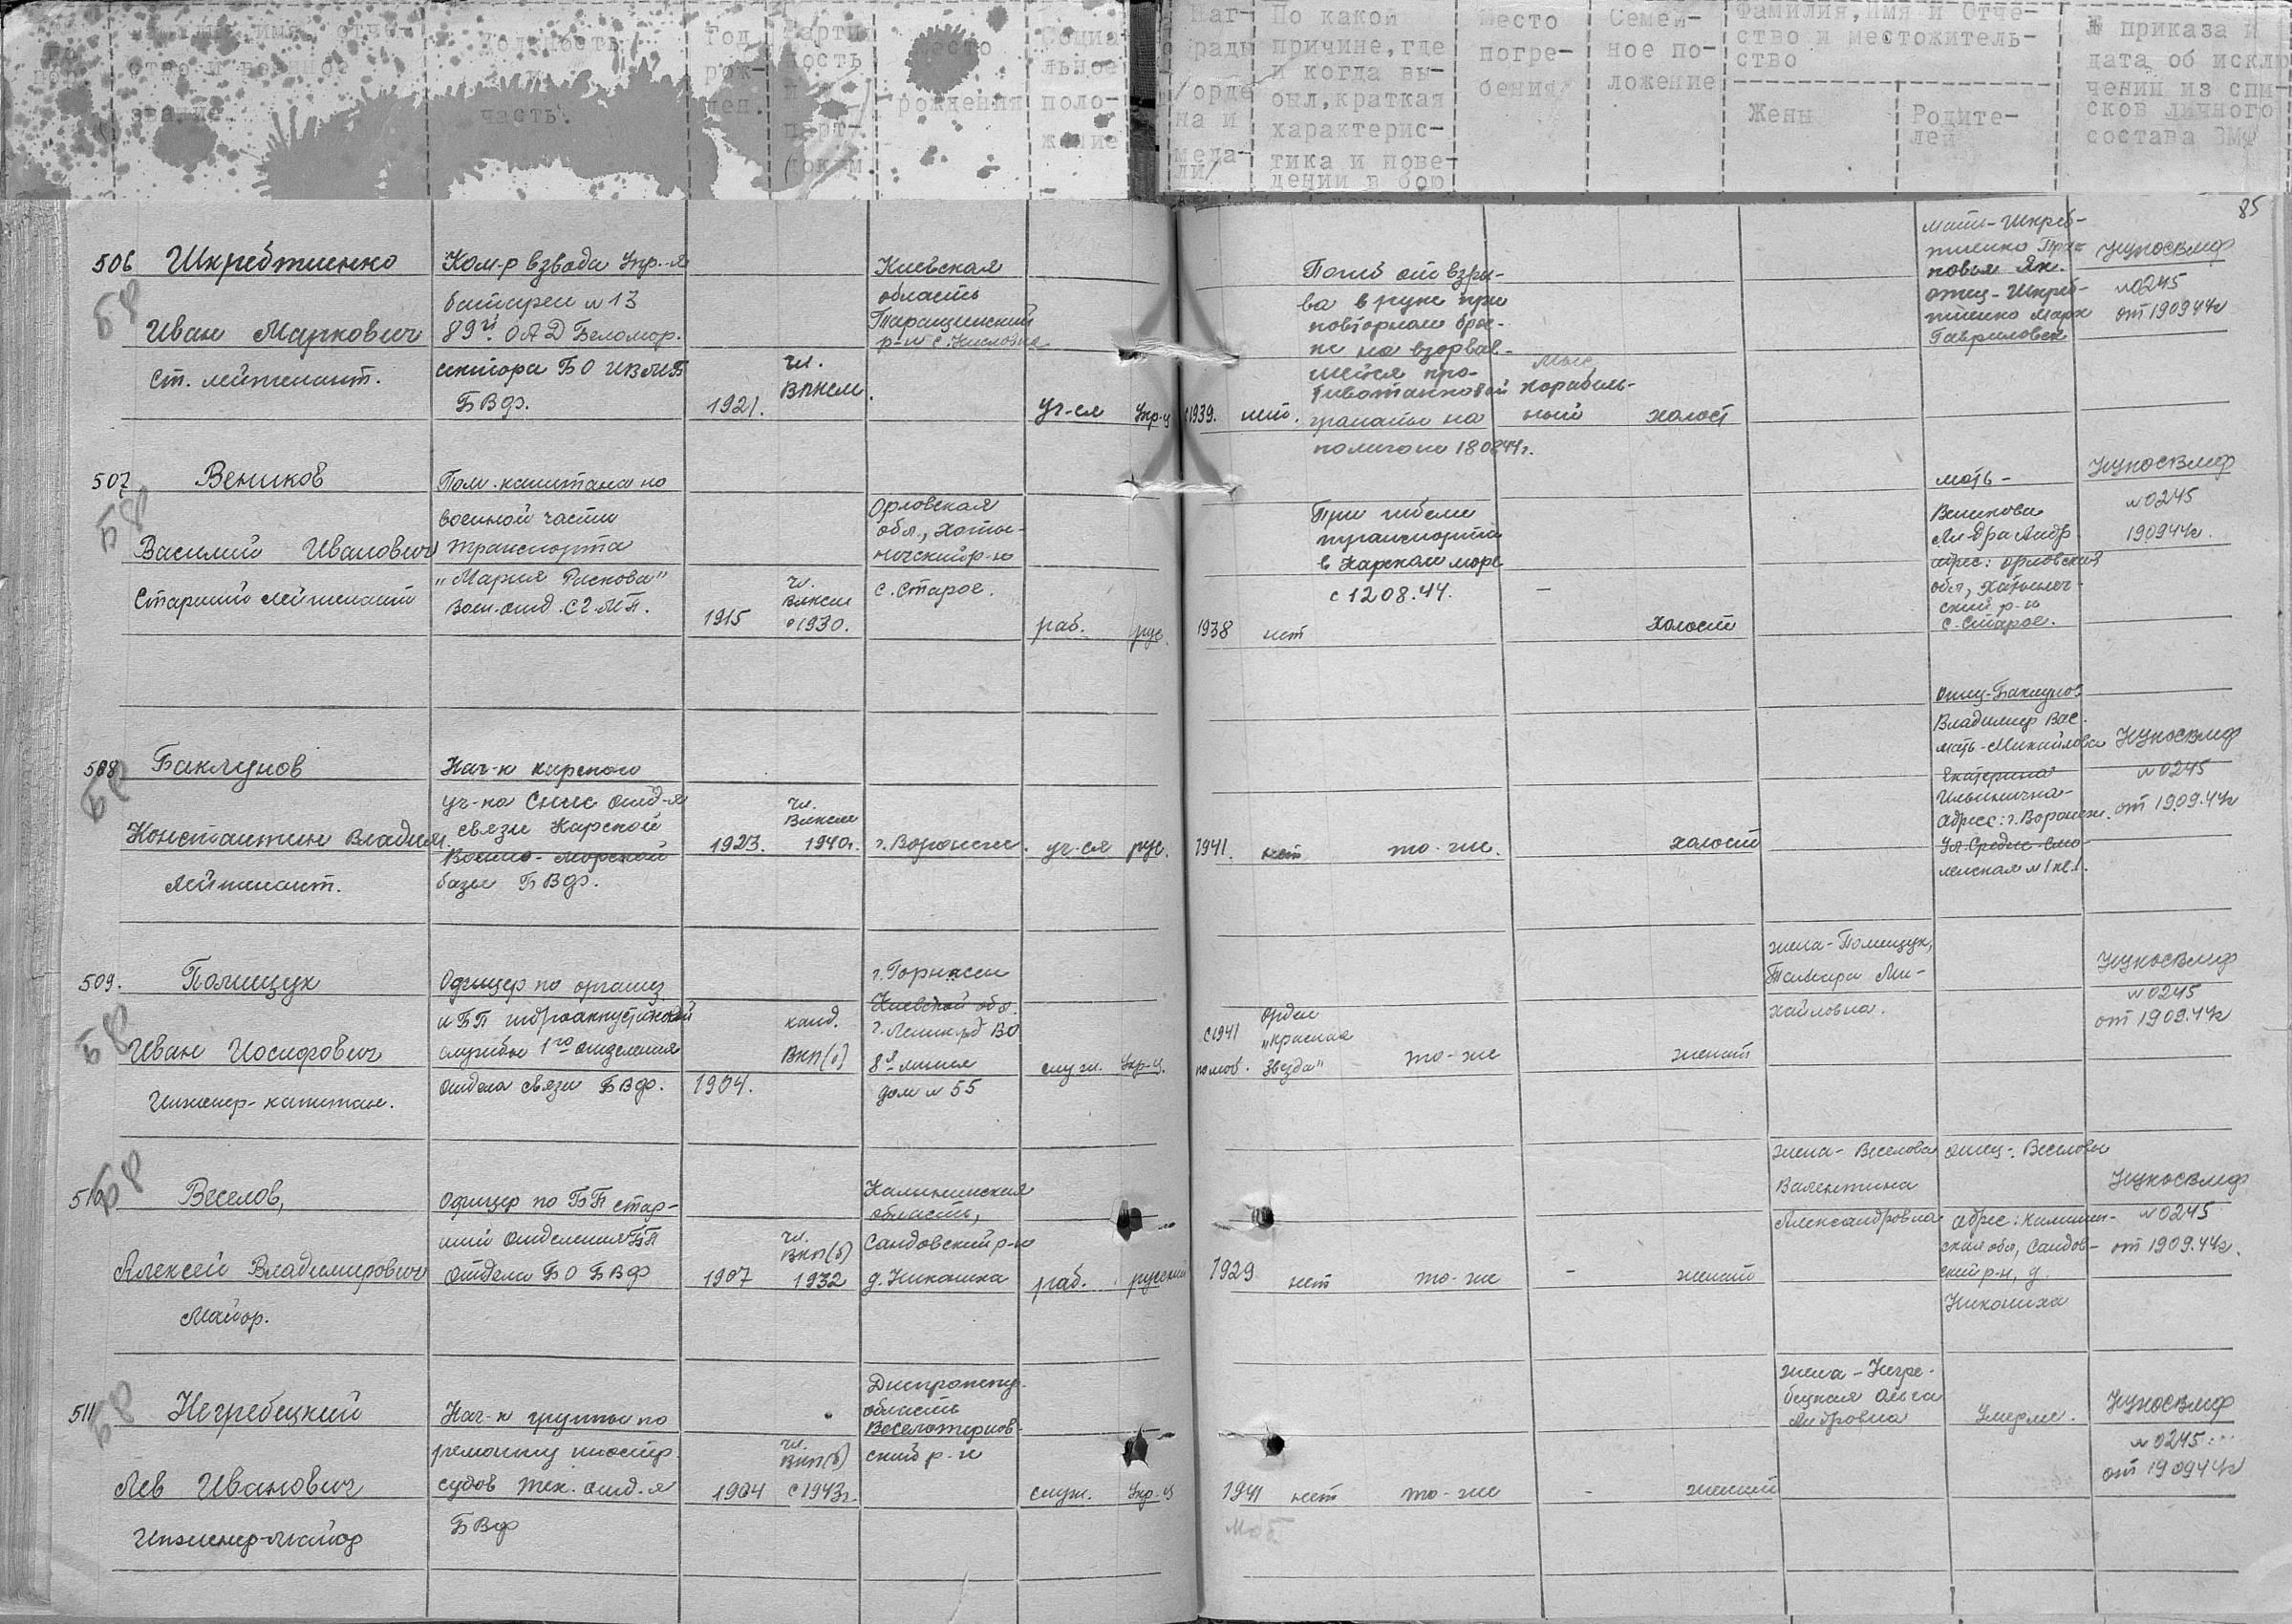 Год
рож-
ден.
Парти
ность
и
парт-
место
рождения
Социа
льное
поло-
жение
часть.
звание.
Наг-
рады
/орде
на и
меда-
ли/
По какой
причине, где
и когда вы-
был, краткая
характерис-
тика и пове-
дении в бою
Место
погре-
бения
Семей-
ное по-
ложение
Фамилия, имя и Отче-
ство и местожитель-
ство
Жены
Родите-
лей
№ приказа и
дата об исклю
чении из спи-
сков личного
состава ВМФ
85
506
Б8
Шкребтиенко
Иван Маркович
Ст. лейтенант.
Ком-р взвода Упр-я
батареи №13
89й ОАД Беломор.
сектора БО
БВф.
1921.
чл.
ВЛКСМ.
Киевская
область
Таращинский
р-н с.
уч-ся
Укр-ц
с1939.
Погиб от взры-
ва в руке при
повторном брос-
ке не взорвав-
шейся про-
тивотанковой
гранаты на
полигоне 180844г.
мыс
Корабель-
ный
холост
мать - Шкреб-
тиенко Прас-
ковья Як.
отец - Шкреб-
тиенко Марк
Гаврилович
НУПОСВМФ
№0245
от 190944г
507
Б8
Веников
Василий Иванович
Старший лейтенант
Пом. капитана по
военной части
транспорта
"Марина Раскова"
Вои. отд. СГМП.
1915
чл.
ВЛКСМ
с1930.
Орловская
обл., Хоты-
нический р-н
с. Старое.
раб.
рус.
1938
нет
При гибели
транспорта
в Карском море
с 12 08.44.
—
Холост
мать -
Веникова
Ал-дра Андр
адрес: Орловская
обл, Хотынич-
ский р-н
с. Старое.
НУПОСВМФ
№0245
190944г.
508
Б8
Баклунов
Константин Владим.
Лейтенант.
Нач-к карского
уч-ка СНиС отд-я
связи Карской
Военно-морской
базы БВф.
1923.
чл.
ВЛКСМ
1940г.
г. Воронеж.
уч-ся
рус.
1941.
нет
то-же.
холост
отец-Баклунов
Владимир Вас.
мать-Михайлова
Екатерина
Ильинична-
адрес: г. Воронеж.
Ул. Средне-Смо-
ленская №1 кв.1.
НУПОСВМФ
№0245
от 1909.44г
509.
Б8
Полищук
Иван Иосифович
Инженер-капитан.
Офицер по организ.
и БП гидроакустической
службы 1го отделения
отдела связи БВф.
1904.
канд.
ВКП(б)
Киевской обл.
г. Ленингр. ВО
8я линия
дом №55
служ.
Укр-ц.
с1941
по моб.
Орден
"Красная
Звезда"
то-же
женат
жена-Полищук,
Тамара Ми-
хайловна.
НУПОСВМФ
№0245
от 1909.44г
510
Б8
Веселов,
Алексей Владимирович
Майор.
Офицер по БП стар-
ший отделения БП
отдела БО БВф
1907
чл.
ВКП(б)
1932
Калининская
область,
Сандовский р-н
раб.
русский
1929
нет
то-же
-
женат
жена - Веселова
Валентина
Александровна
отец - Веселовы
адрес: Калинин-
ская обл, Сандов-
ский р-н, д.
Никониха
НУПОСВМФ
№0245
от 1909.44г.
511
Б8
Негребецкий
Лев Иванович
Инженер-майор
Нач-к группы по
ремонту
судов тех. отд-я
БВф
1904
чл.
ВКП(б)
с1943г.
Днепропетр.
область
Веселотернов-
ский р-н
служ.
Укр-ц
1941
Моб.
нет
то-же
-
женат
жена - Негре-
бецкая Ольга
Умерли.
НУПОСВМФ
№0245
от 190944г